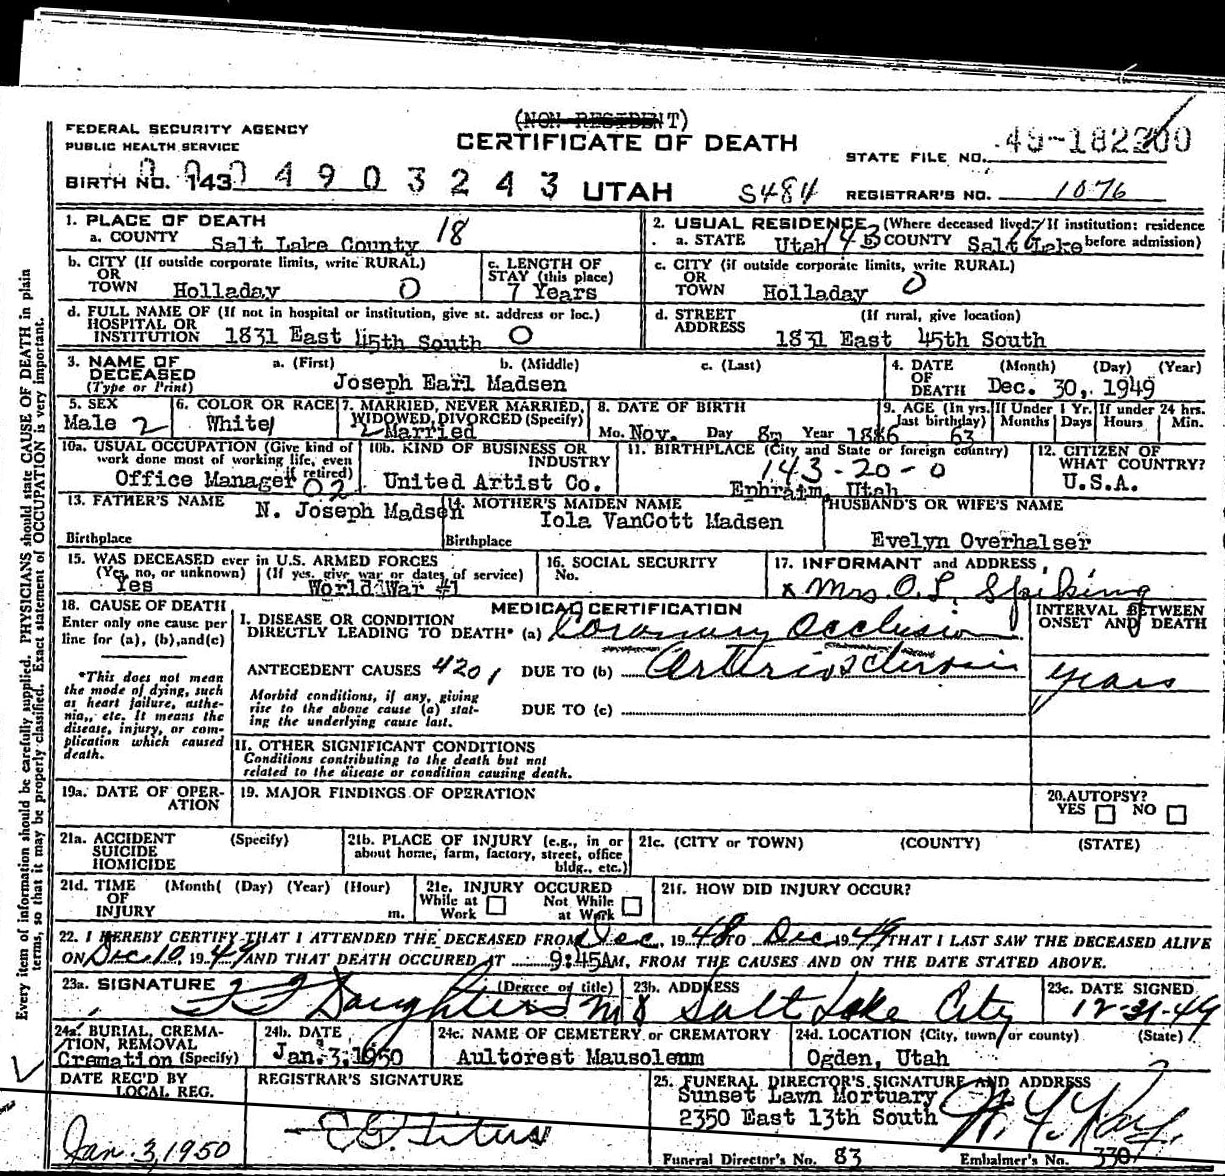 (NON RESIDENT)
FEDERAL SECURITY AGENCY
PUBLIC HEALTH SERVICE
CERTIFICATE OF DEATH
STATE FILE NO. 49-182200
BIRTH NO. 143 4 9 0 3 2 4 3 UTAH S484 REGISTRAR'S NO. 1076
1. PLACE OF DEATH
a. COUNTY Salt Lake County 18
2. USUAL RESIDENCE (Where deceased lived. If institution: residence
a. STATE Utah 143 b COUNTY Salt Lake before admission)
b. CITY (If outside corporate limits, write RURAL)
OR
TOWN Holladay 0
c. LENGTH OF
STAY (this place)
7 Years
c. CITY (if outside corporate limits, write RURAL)
OR
TOWN Holladay 0
d. FULL NAME OF (If not in hospital or institution, give st. address or loc.)
HOSPITAL OR
INSTITUTION 1831 East 45th South 0
d. STREET (If rural, give location)
ADDRESS 1831 East 45th South
3. NAME OF DECEASED (Type or Print)
a. (First) b. (Middle) c. (Last)
Joseph Earl Madsen
4. DATE OF DEATH (Month) (Day) (Year)
Dec. 30, 1949
5. SEX
Male 2
6. COLOR OR RACE
White 1
7. MARRIED, NEVER MARRIED,
WIDOWED, DIVORCED (Specify)
2 Married
8. DATE OF BIRTH
Mo. Nov. Day 8 Year 1886
9. AGE (In yrs. last birthday) 63
If Under 1 Yr. Months Days
If under 24 hrs. Hours Min.
10a. USUAL OCCUPATION (Give kind of
work done most of working life, even
if retired)
Office Manager 02
10b. KIND OF BUSINESS OR
INDUSTRY
United Artist Co.
11. BIRTHPLACE (City and State or foreign country)
143-20-0
Ephraim, Utah
12. CITIZEN OF
WHAT COUNTRY?
U.S.A.
13. FATHER'S NAME
N. Joseph Madsen
Birthplace
14. MOTHER'S MAIDEN NAME
Iola VanCott Madsen
Birthplace
HUSBAND'S OR WIFE'S NAME
Evelyn Overhalser
15. WAS DECEASED ever in U.S. ARMED FORCES
(Yes, no, or unknown) (If yes, give war or dates of service)
Yes World War #1
16. SOCIAL SECURITY
No.
17. INFORMANT and ADDRESS
x Mrs. O. L. Spiking
18. CAUSE OF DEATH
Enter only one cause per
line for (a), (b), and (c)
*This does not mean
the mode of dying, such
as heart failure, asthe-
nia, etc. It means the
disease, injury, or com-
plication which caused
death.
MEDICAL CERTIFICATION
I. DISEASE OR CONDITION
DIRECTLY LEADING TO DEATH* (a) Coronary Occlusion
INTERVAL BETWEEN
ONSET AND DEATH
ANTECEDENT CAUSES 420, DUE TO (b) Arteriosclerosis years
Morbid conditions, if any, giving
rise to the above cause (a) stat-
ing the underlying cause last.
DUE TO (c)
II. OTHER SIGNIFICANT CONDITIONS
Conditions contributing to the death but not
related to the disease or condition causing death.
19a. DATE OF OPER-
ATION
19. MAJOR FINDINGS OF OPERATION
20. AUTOPSY?
YES NO
21a. ACCIDENT (Specify)
SUICIDE
HOMICIDE
21b. PLACE OF INJURY (e.g., in or
about home, farm, factory, street, office
bldg., etc.)
21c. (CITY or TOWN) (COUNTY) (STATE)
21d. TIME (Month( (Day) (Year) (Hour)
OF
INJURY m.
21e. INJURY OCCURED
While at Work Not While at Work
21f. HOW DID INJURY OCCUR?
22. I HEREBY CERTIFY THAT I ATTENDED THE DECEASED FROM Dec, 1948 TO Dec 1949 THAT I LAST SAW THE DECEASED ALIVE
ON Dec. 10, 1949 AND THAT DEATH OCCURED AT 9:45AM, FROM THE CAUSES AND ON THE DATE STATED ABOVE.
23a. SIGNATURE (Degree or title)
Daughters MD
23b. ADDRESS
Salt Lake City
23c. DATE SIGNED
12-31-49
24a. BURIAL, CREMA-
TION, REMOVAL
Cremation (Specify)
24b. DATE
Jan. 3, 1950
24c. NAME OF CEMETERY or CREMATORY
Aultorest Mausoleum
24d. LOCATION (City, town, or county) (State)
Ogden, Utah
DATE REC'D BY
LOCAL REG.
Jan. 3, 1950
REGISTRAR'S SIGNATURE
25. FUNERAL DIRECTOR'S SIGNATURE AND ADDRESS
Sunset Lawn Mortuary
2350 East 13th South
Funeral Director's No. 83 Embalmer's No. 330
Every item of information should be carefully supplied. PHYSICIANS should state CAUSE OF DEATH in plain
terms, so that it may be properly classified. Exact statement of OCCUPATION is very important.